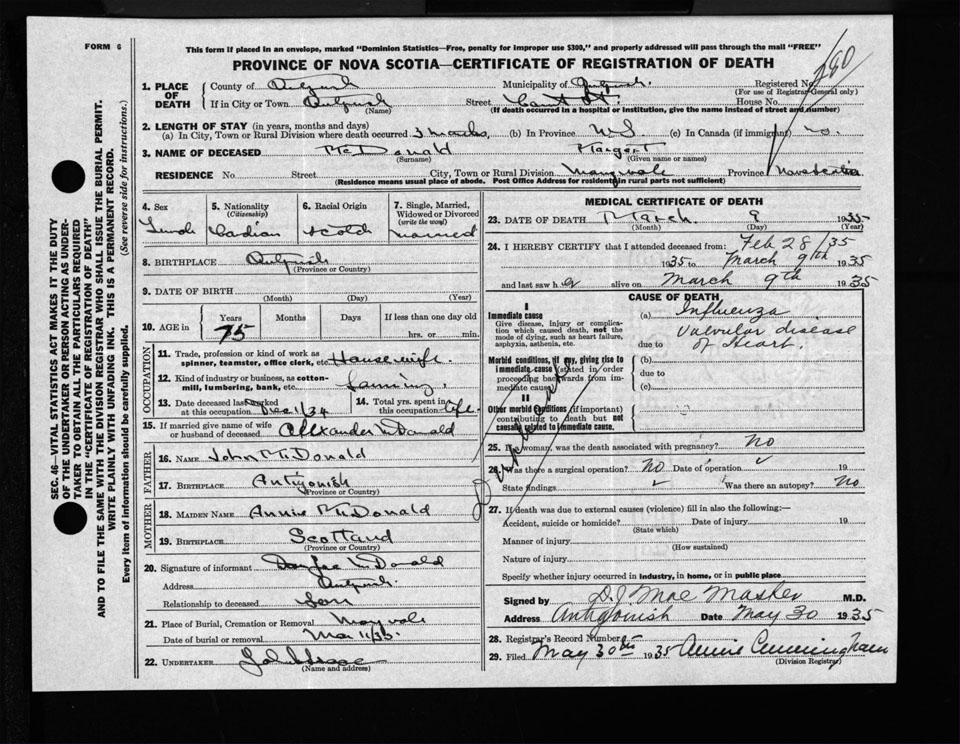 FORM 6
This form if placed in an envelope, marked "Dominion Statistics—Free, penalty for improper use $300," and properly addressed will pass through the mail "FREE"
PROVINCE OF NOVA SCOTIA—CERTIFICATE OF REGISTRATION OF DEATH
1. PLACE OF DEATH County of Municipality of Registered No.
(For use of Registrar General only)
If in City or Town Street House No.
(Name) (If death occurred in a hospital or institution, give the name instead of street and number)
2. LENGTH OF STAY (in years, months and days)
(a) In City, Town or Rural Division where death occurred (b) In Province N.S. (c) In Canada (if immigrant)
3. NAME OF DECEASED McDonald Margert
(Surname) (Given name or names)
RESIDENCE No. Street City, Town or Rural Division Province Nova Scotia
(Residence means usual place of abode. Post Office Address for residents in rural parts not sufficient)
4. Sex 5. Nationality (Citizenship) 6. Racial Origin 7. Single, Married, Widowed or Divorced (write the word)
Scotch Married
8. BIRTHPLACE
(Province or Country)
9. DATE OF BIRTH
(Month) (Day) (Year)
10. AGE in Years Months Days If less than one day old
75 hrs. or min.
OCCUPATION
11. Trade, profession or kind of work as spinner, teamster, office clerk, etc. Housewife.
12. Kind of industry or business, as cotton-mill, lumbering, bank, etc.
13. Date deceased last worked at this occupation Dec 1/34 14. Total yrs. spent in this occupation life.
15. If married give name of wife or husband of deceased
FATHER
16. NAME John McDonald
17. BIRTHPLACE Antigonish
(Province or Country)
MOTHER
18. MAIDEN NAME Annie McDonald
19. BIRTHPLACE Scotland
(Province or Country)
20. Signature of informant
Address
Relationship to deceased Son
21. Place of Burial, Cremation or Removal
Date of burial or removal Mar 11/35.
22. UNDERTAKER
(Name and address)
MEDICAL CERTIFICATE OF DEATH
23. DATE OF DEATH March 9 1935
(Month) (Day) (Year)
24. I HEREBY CERTIFY that I attended deceased from: Feb 28/35
1935 to March 9th 1935
and last saw her alive on March 9th 1935
CAUSE OF DEATH
I
Immediate cause
Give disease, injury or complication which caused death, not the mode of dying, such as heart failure, asphyxia, asthenia, etc.
(a) Influenza
Valvular disease
due to of Heart.
Morbid conditions, if any, giving rise to immediate cause (stated in order proceeding backwards from immediate cause)
(b)
due to
(c)
II
Other morbid conditions (if important) contributing to death but not causally related to immediate cause.
25. If woman, was the death associated with pregnancy? no
26. Was there a surgical operation? no Date of operation 19
State findings Was there an autopsy? no
27. If death was due to external causes (violence) fill in also the following:—
Accident, suicide or homicide? Date of injury 19
(State which)
Manner of injury
(How sustained)
Nature of injury
Specify whether injury occurred in industry, in home, or in public place
Signed by M.D.
Address Antigonish Date May 30 1935
28. Registrar's Record Number
29. Filed May 30th 1935 Annie Cunningham
(Division Registrar)
SEC. 46—VITAL STATISTICS ACT MAKES IT THE DUTY
OF THE UNDERTAKER OR PERSON ACTING AS UNDER-
TAKER TO OBTAIN ALL THE PARTICULARS REQUIRED
IN THE "CERTIFICATE OF REGISTRATION OF DEATH"
AND TO FILE THE SAME WITH THE DIVISION REGISTRAR WHO SHALL ISSUE THE BURIAL PERMIT.
WRITE PLAINLY WITH UNFADING INK. THIS IS A PERMANENT RECORD.
Every item of information should be carefully supplied. (See reverse side for instructions.)